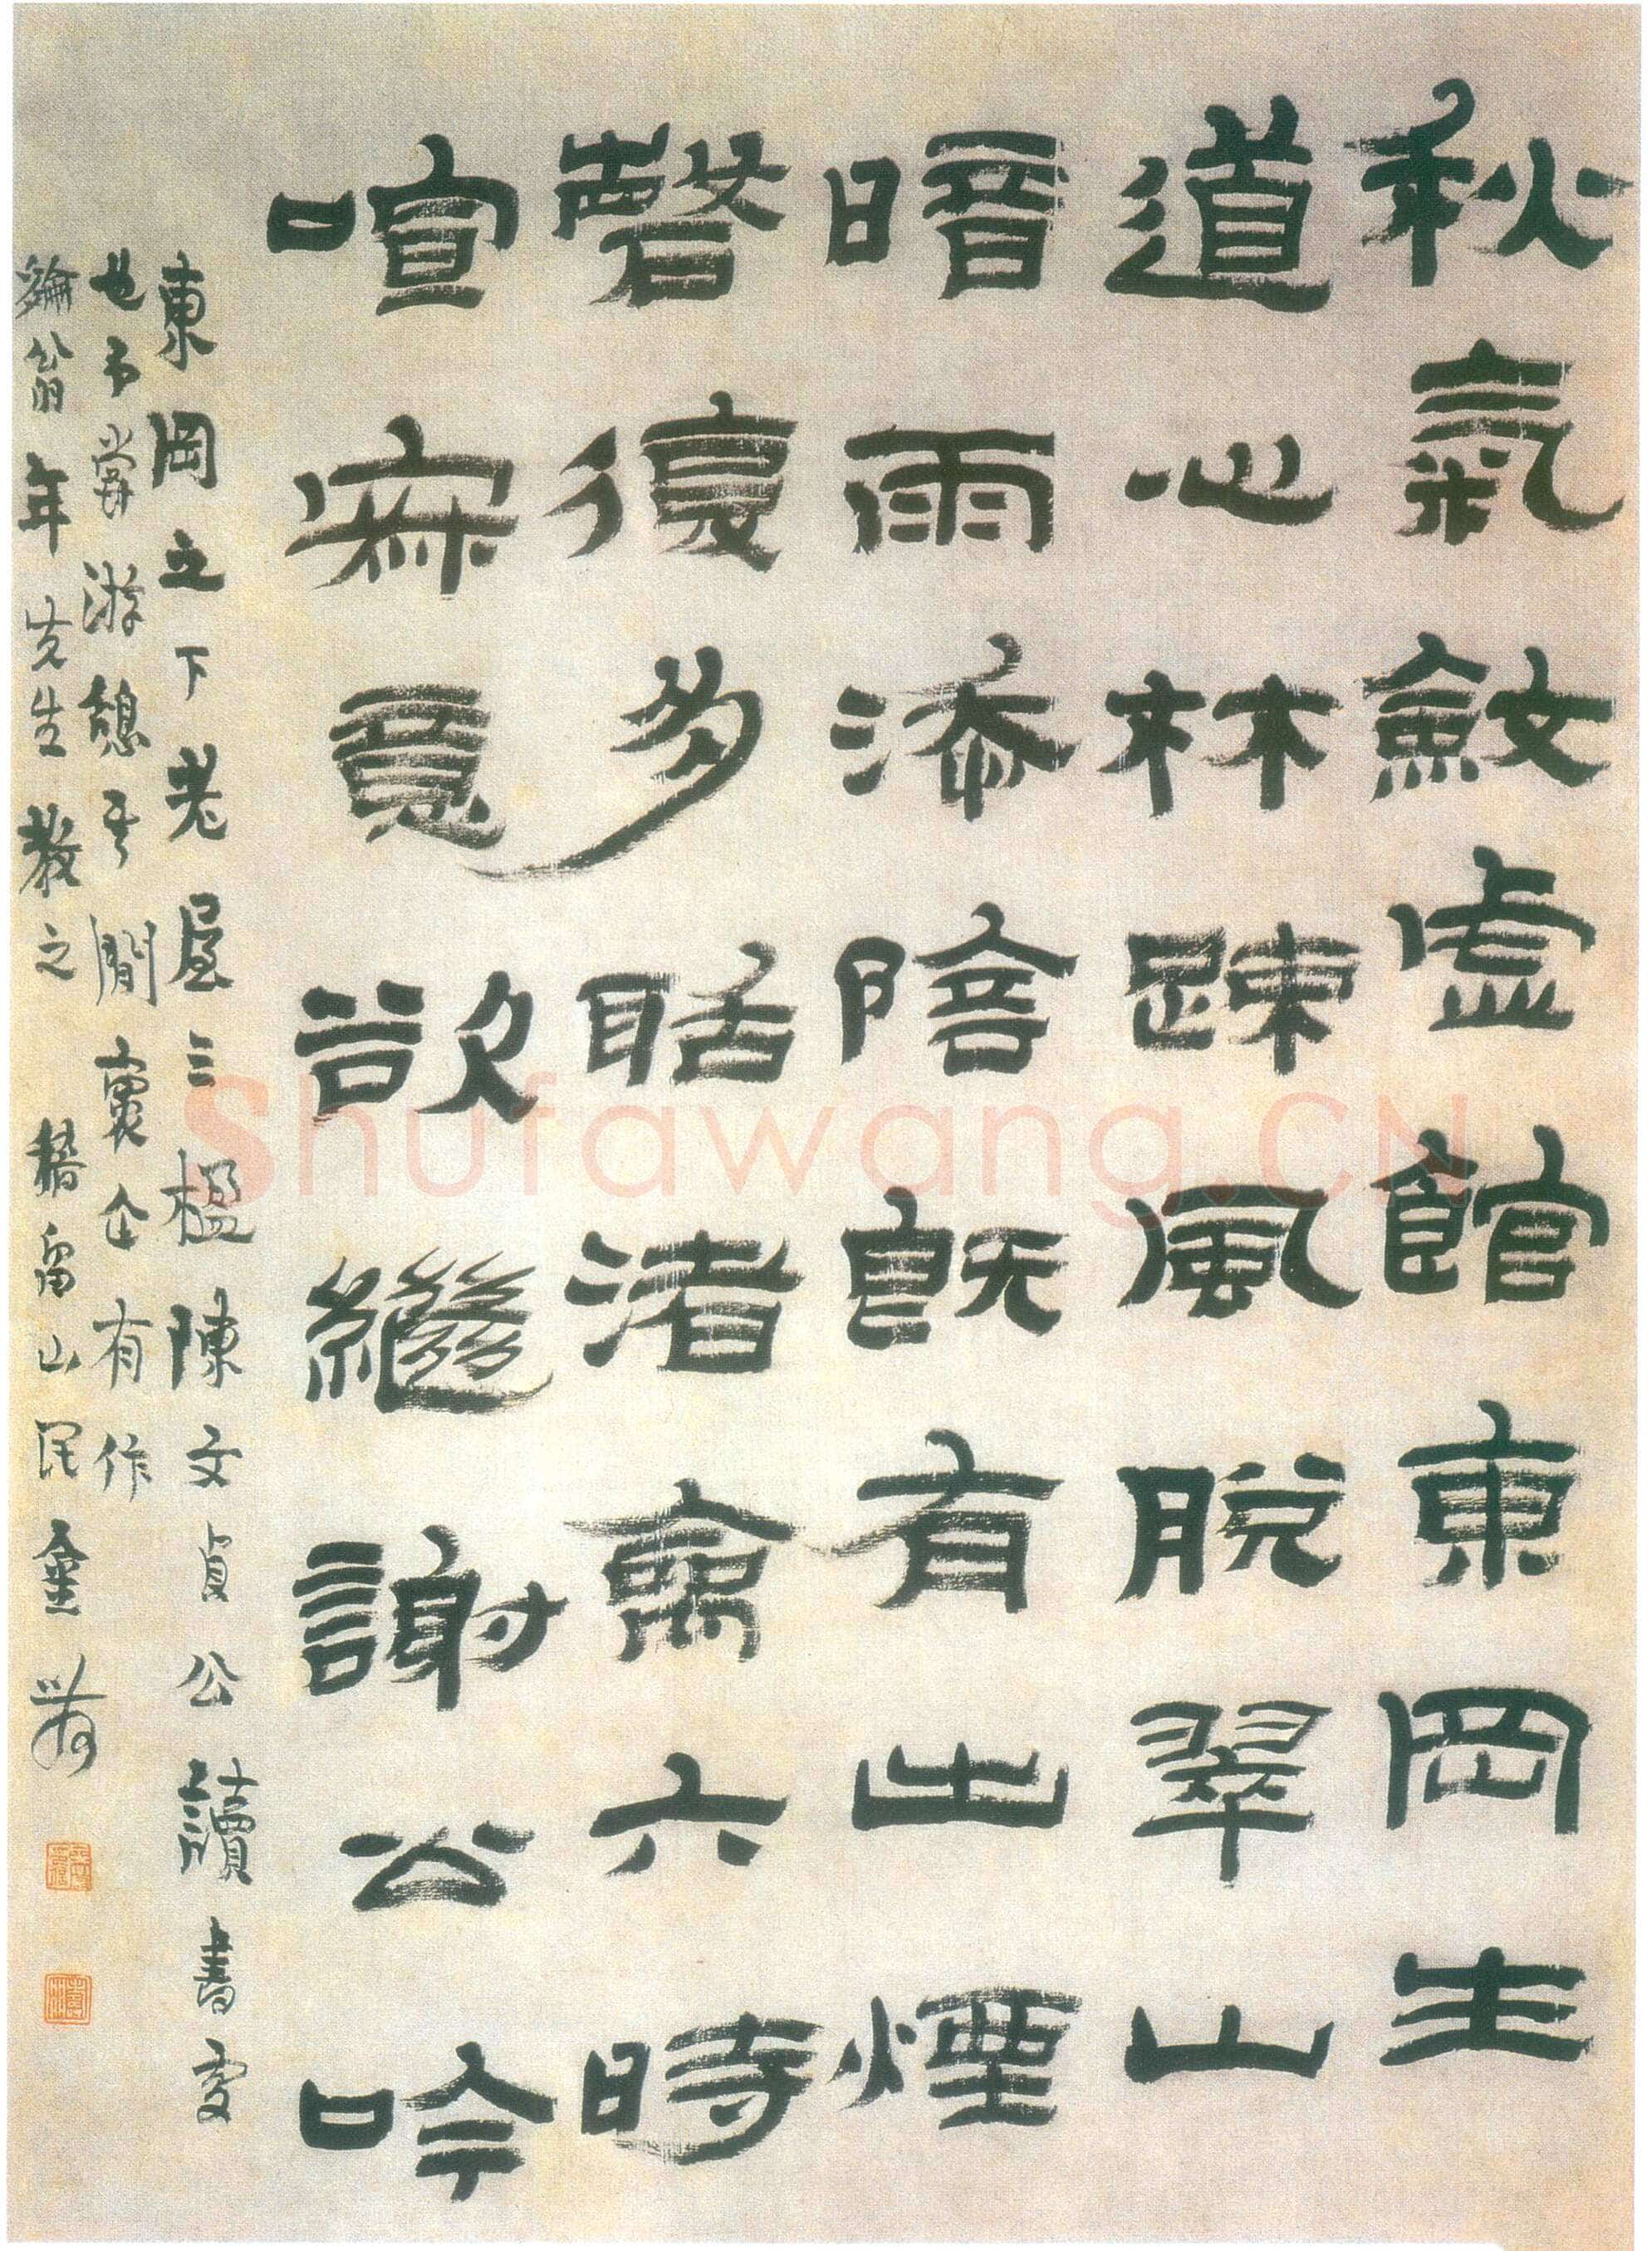 秋氣斂虛館東岡生
道心林踈風脫翠山
暗雨添陰既有出煙
磬復多聒渚禽六時
喧寂意欲繼謝公吟
東岡之下老屋三楹陳文貞公讀書處
也予嘗游憩其間裏企有作
綸翁年先生教之 稽留山民金農
Shufawang.CN